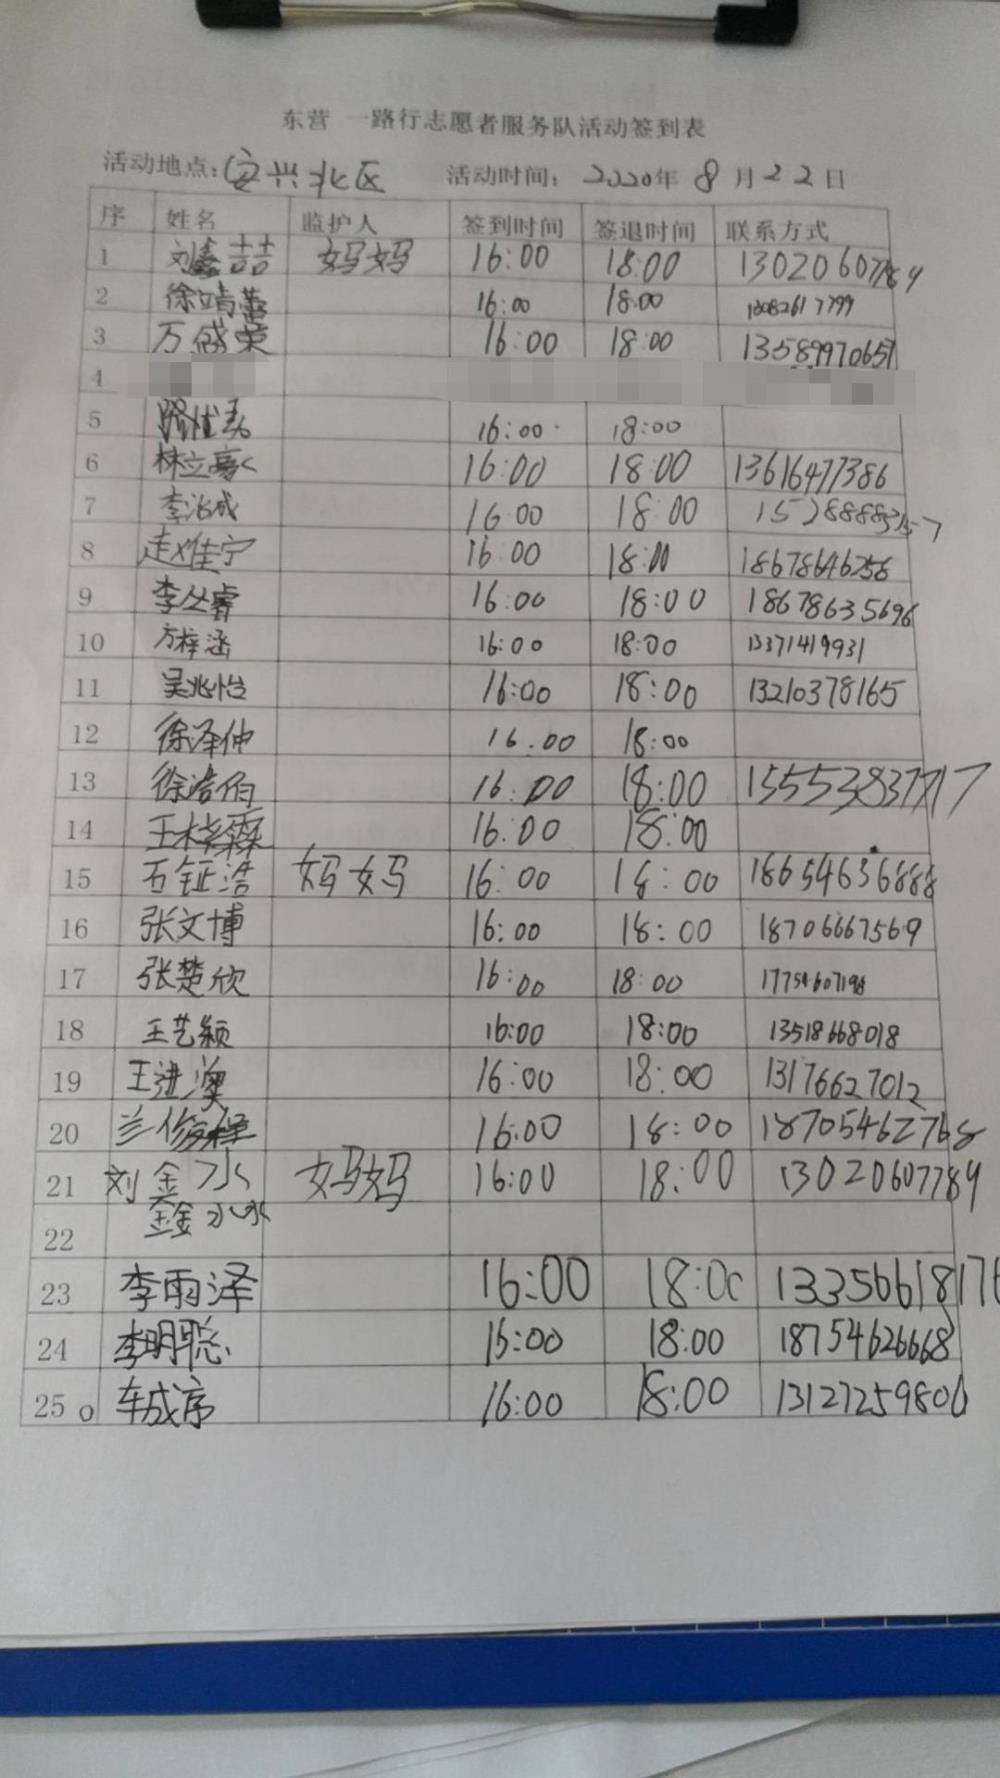 东营 一路行志愿者服务队活动签到表
活动地点：安兴北区 活动时间：2020年 8月22日
序 姓名 监护人 签到时间 签退时间 联系方式
1 刘鑫喆 妈妈 16:00 18:00 13020607789
2 徐靖蕾 16:00 18:00
3 万盛荣 16:00 18:00 13589970657
4
5 16:00 18:00
6 林立豪 16:00 18:00 13616477386
7 李治成 16:00 18:00
8 赵惟宁 16:00 18:00 18678646258
9 李丛睿 16:00 18:00 18678635696
10 方梓涵 16:00 18:00 13371419931
11 吴兆怡 16:00 18:00 13210378165
12 徐泽仲 16:00 18:00
13 徐浩伯 16:00 18:00 15553837717
14 王梓霖 16:00 18:00
15 石钲浩 妈妈 16:00 18:00 18654636888
16 张文博 16:00 18:00 18706667569
17 张楚欣 16:00 18:00 17754607198
18 王艺颖 16:00 18:00 13518668018
19 王进澳 16:00 18:00 13176627012
20 兰俊程 16:00 18:00 18705462768
21 刘金水 妈妈 16:00 18:00 13020607789
22 鑫淼
23 李雨泽 16:00 18:00 13356618176
24 李明聪 15:00 18:00 18754626668
25 车成序 16:00 18:00 13127259806